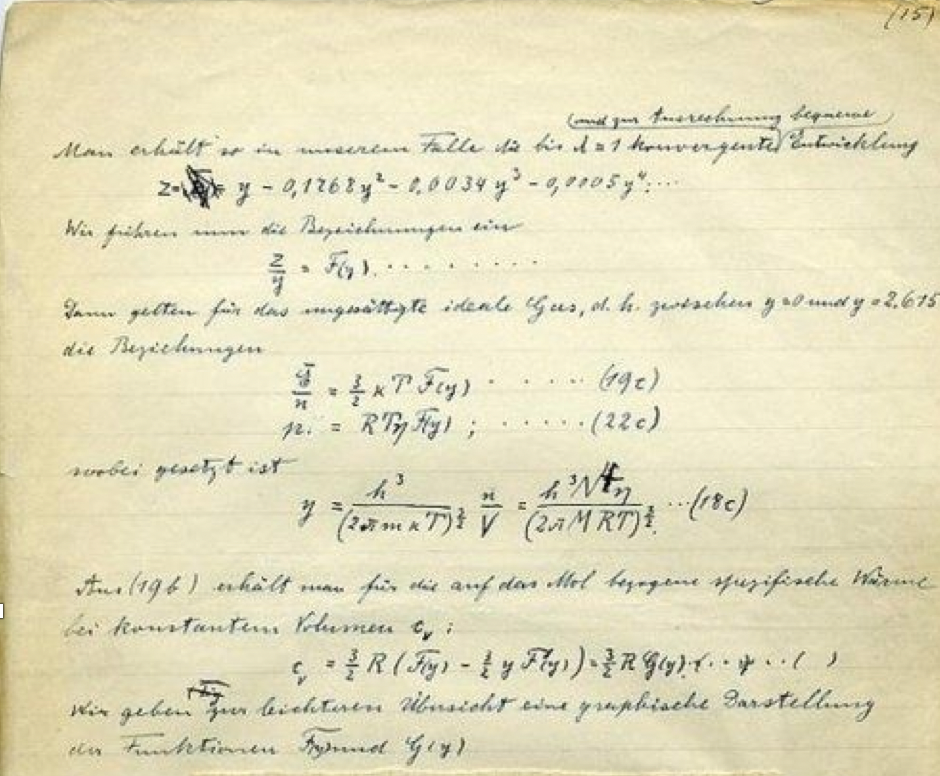 (15)
(und zur Ausrechnung bequeme)
Man erhält so in unserem Falle die bis λ = 1 konvergente Entwicklung
z = y - 0,1768 y² - 0,0034 y³ - 0,0005 y⁴ ...
Wir führen nun die Bezeichnungen ein
z/y = F(y) . . . . . . . . .
Dann gelten für das ungesättigte ideale Gas, d. h. zwischen y = 0 und y = 2,615
die Beziehungen
Ē/n = 3/2 κ T F(y) . . . . . (19c)
p = R T η F(y) ; . . . . . (22c)
wobei gesetzt ist
y = h³/(2π m κ T)^{3/2} n/V = h³ N⁴ η/(2π M R T)^{3/2} ... (18c)
Aus (19b) erhält man für die auf das Mol bezogene spezifische Wärme
bei konstantem Volumen c_v :
c_v = 3/2 R (F(y) - 3/2 y F'(y)) = 3/2 R G(y) . . . . . ( )
Wir geben zur leichteren Übersicht eine graphische Darstellung
der Funktionen F(y) und G(y)